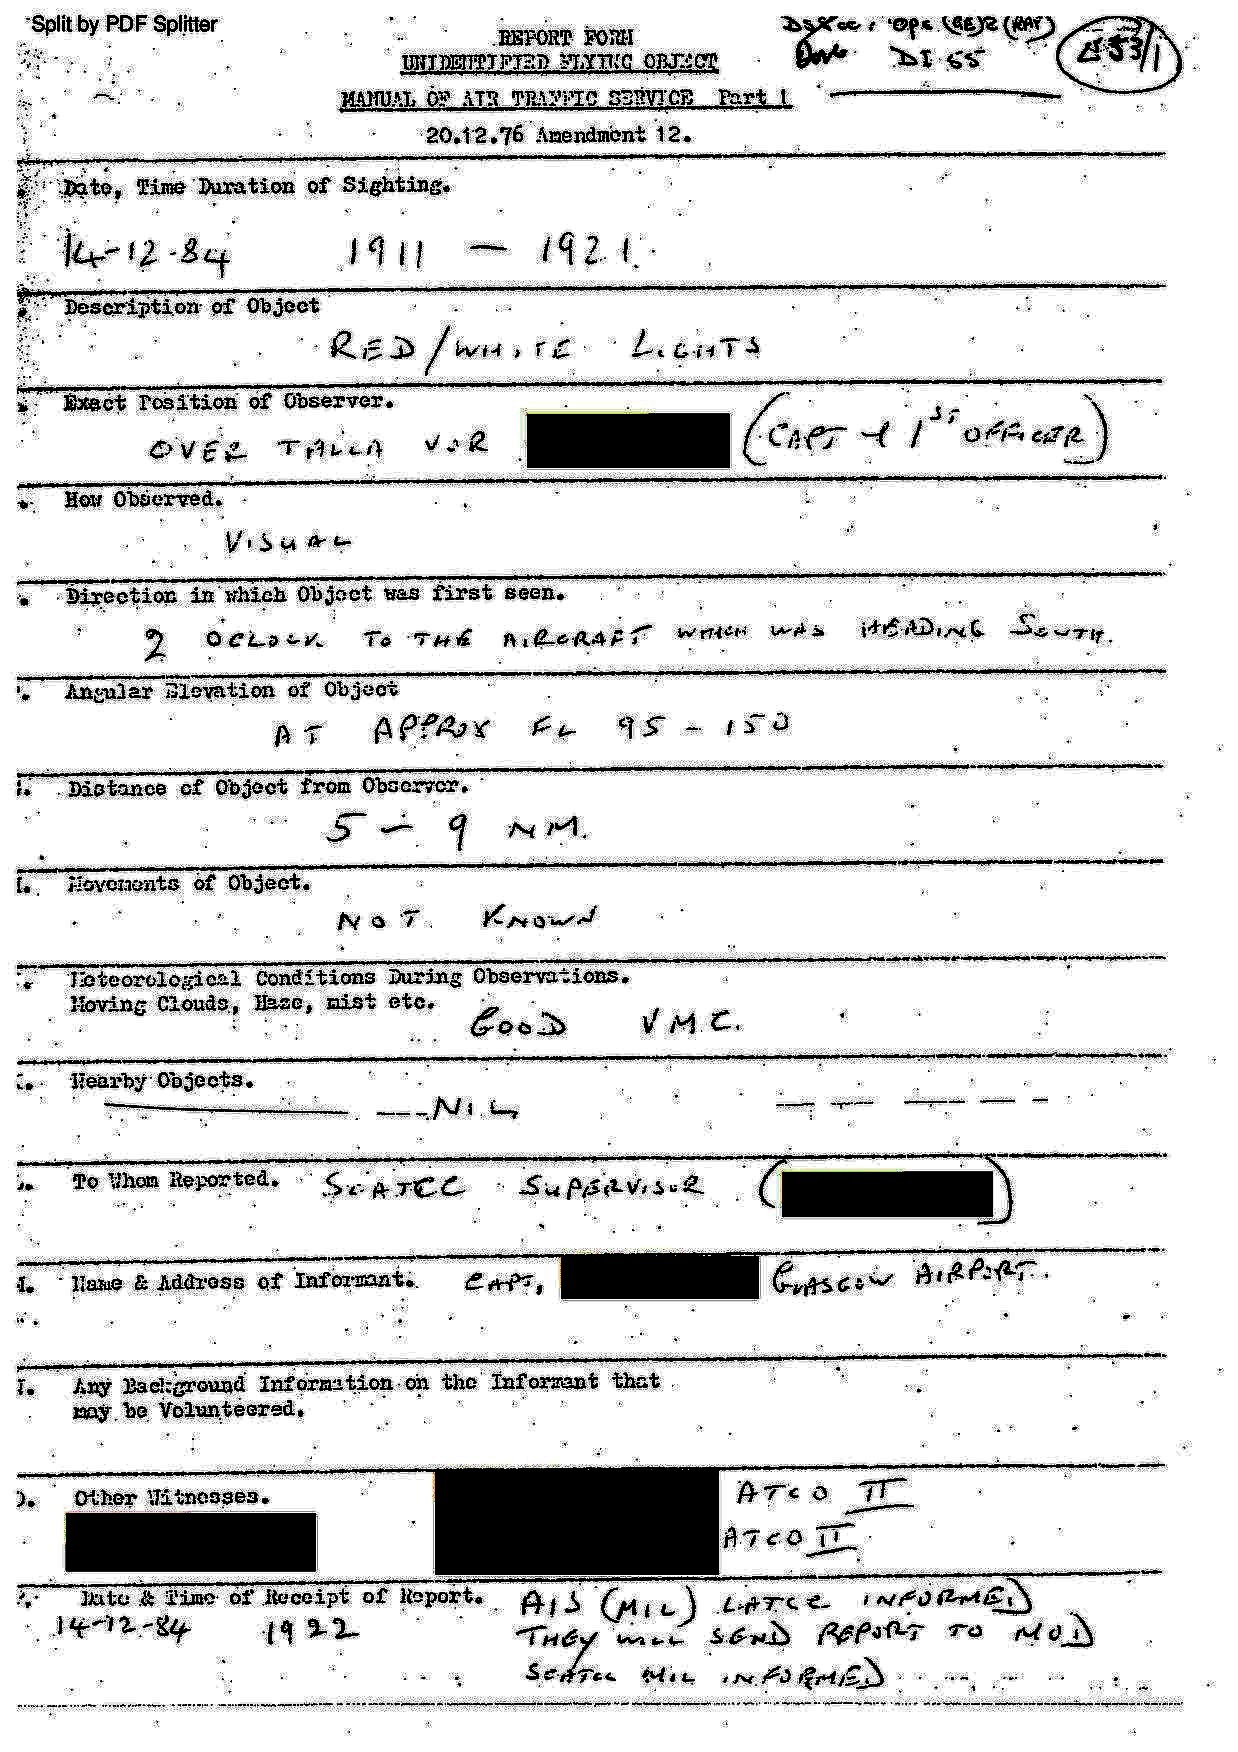 Split by PDF Splitter
REPORT FORM
UNIDENTIFIED FLYING OBJECT
MANUAL OF AIR TRAFFIC SERVICE Part 1
20.12.76 Amendment 12.
Ops (GE)2 (RAF)
DI 55
E53/1
Date, Time Duration of Sighting.
14-12-84 1911 — 1921.
Description of Object
RED/WHITE LIGHTS
Exact Position of Observer.
OVER TALLA VOR (CAPT + 1ST OFFICER)
How Observed.
VISUAL
Direction in which Object was first seen.
2 OCLOCK TO THE AIRCRAFT WHICH WAS HEADING SOUTH.
Angular Elevation of Object
AT APPROX FL 95 - 150
Distance of Object from Observer.
5 — 9 NM.
Movements of Object.
NOT KNOWN
Meteorological Conditions During Observations.
Moving Clouds, Haze, mist etc.
GOOD VMC.
Nearby Objects.
NIL
To Whom Reported. SCATCC SUPERVISOR ( )
M. Name & Address of Informant. CAPT, GLASGOW AIRPORT.
Any Background Information on the Informant that
may be Volunteered.
O. Other Witnesses. ATCO II
ATCO II
Date & Time of Receipt of Report. AIS (MIL) LATCC INFORMED
14-12-84 1922 THEY WILL SEND REPORT TO MOD
SCATCC MIL INFORMED